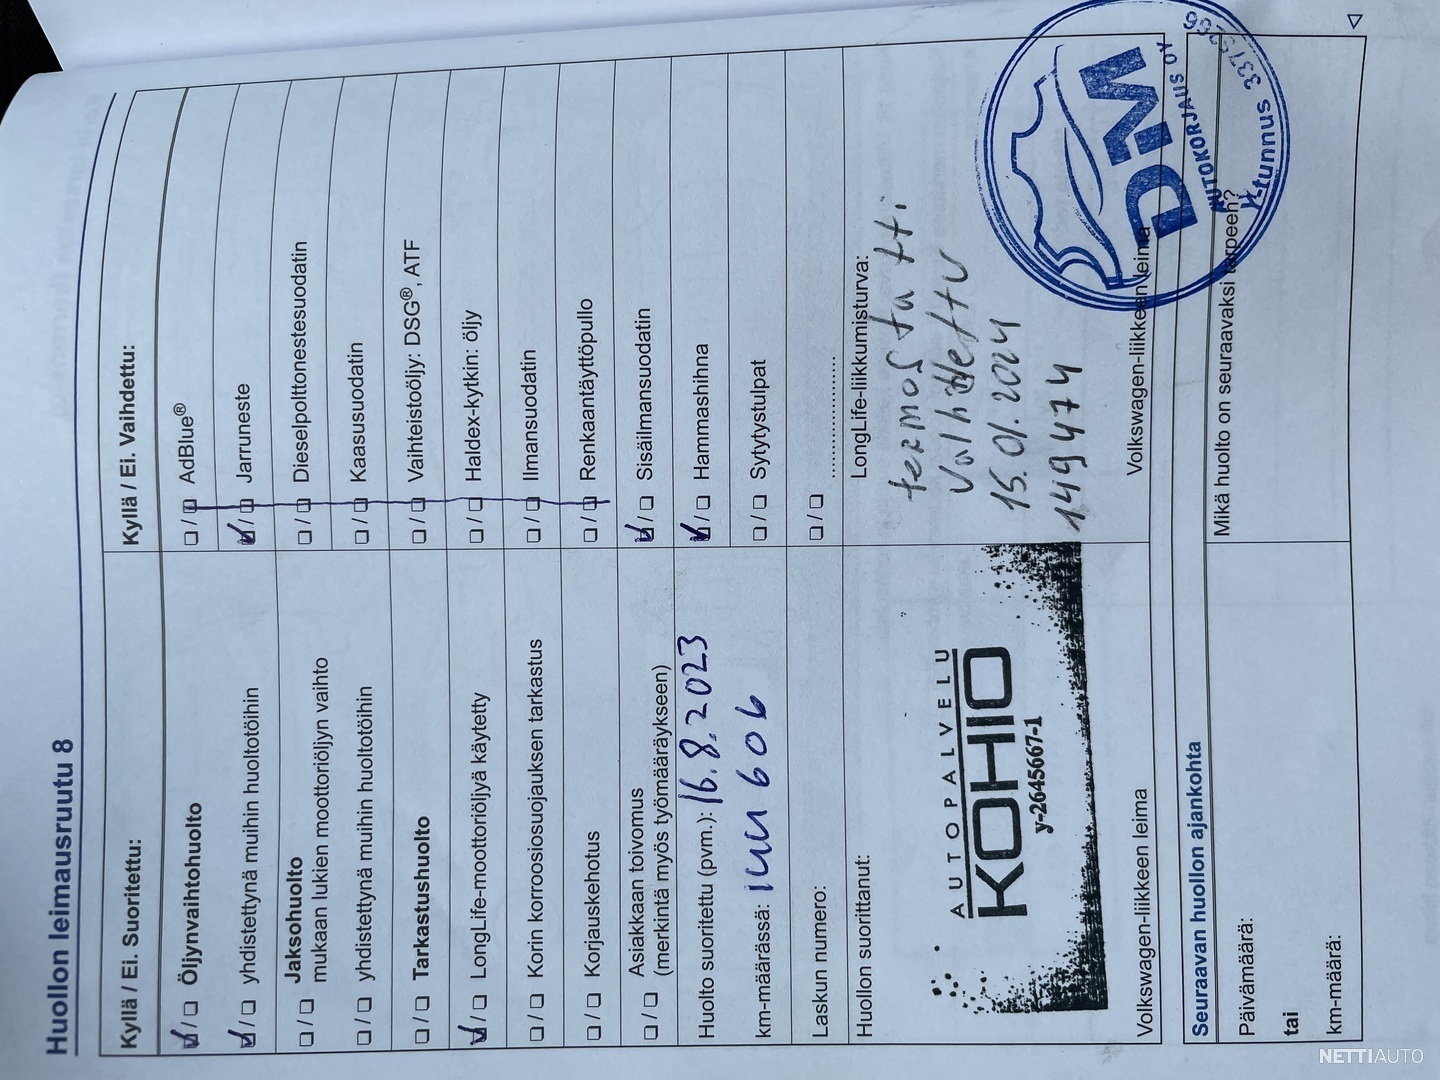 Huollon leimausruutu 8
Kyllä / Ei. Suoritettu:
Öljynvaihtohuolto
yhdistettynä muihin huoltotöihin
Jaksohuolto
mukaan lukien moottoriöljyn vaihto
yhdistettynä muihin huoltotöihin
Tarkastushuolto
LongLife-moottoriöljyä käytetty
Korin korroosiosuojauksen tarkastus
Korjauskehotus
Asiakkaan toivomus
(merkintä myös työmääräykseen)
Huolto suoritettu (pvm.): 16.8.2023
km-määrässä: 144606
Laskun numero:
Huollon suorittanut:
AUTOPALVELU
KOHIO
y-2645667-1
Volkswagen-liikkeen leima
Kyllä / Ei. Vaihdettu:
AdBlue®
Jarruneste
Dieselpolttonestesuodatin
Kaasusuodatin
Vaihteistoöljy: DSG®, ATF
Haldex-kytkin: öljy
Ilmansuodatin
Renkaantäyttöpullo
Sisäilmansuodatin
Hammashihna
Sytytystulpat
....................
LongLife-liikkumisturva:
termostatti
vaihdettu
15.01.2024
149474
DM
AUTOKORJAUS OY
Y-tunnus
Volkswagen-liikkeen leima
Seuraavan huollon ajankohta
Päivämäärä:
tai
km-määrä:
Mikä huolto on seuraavaksi tarpeen?
NETTIAUTO